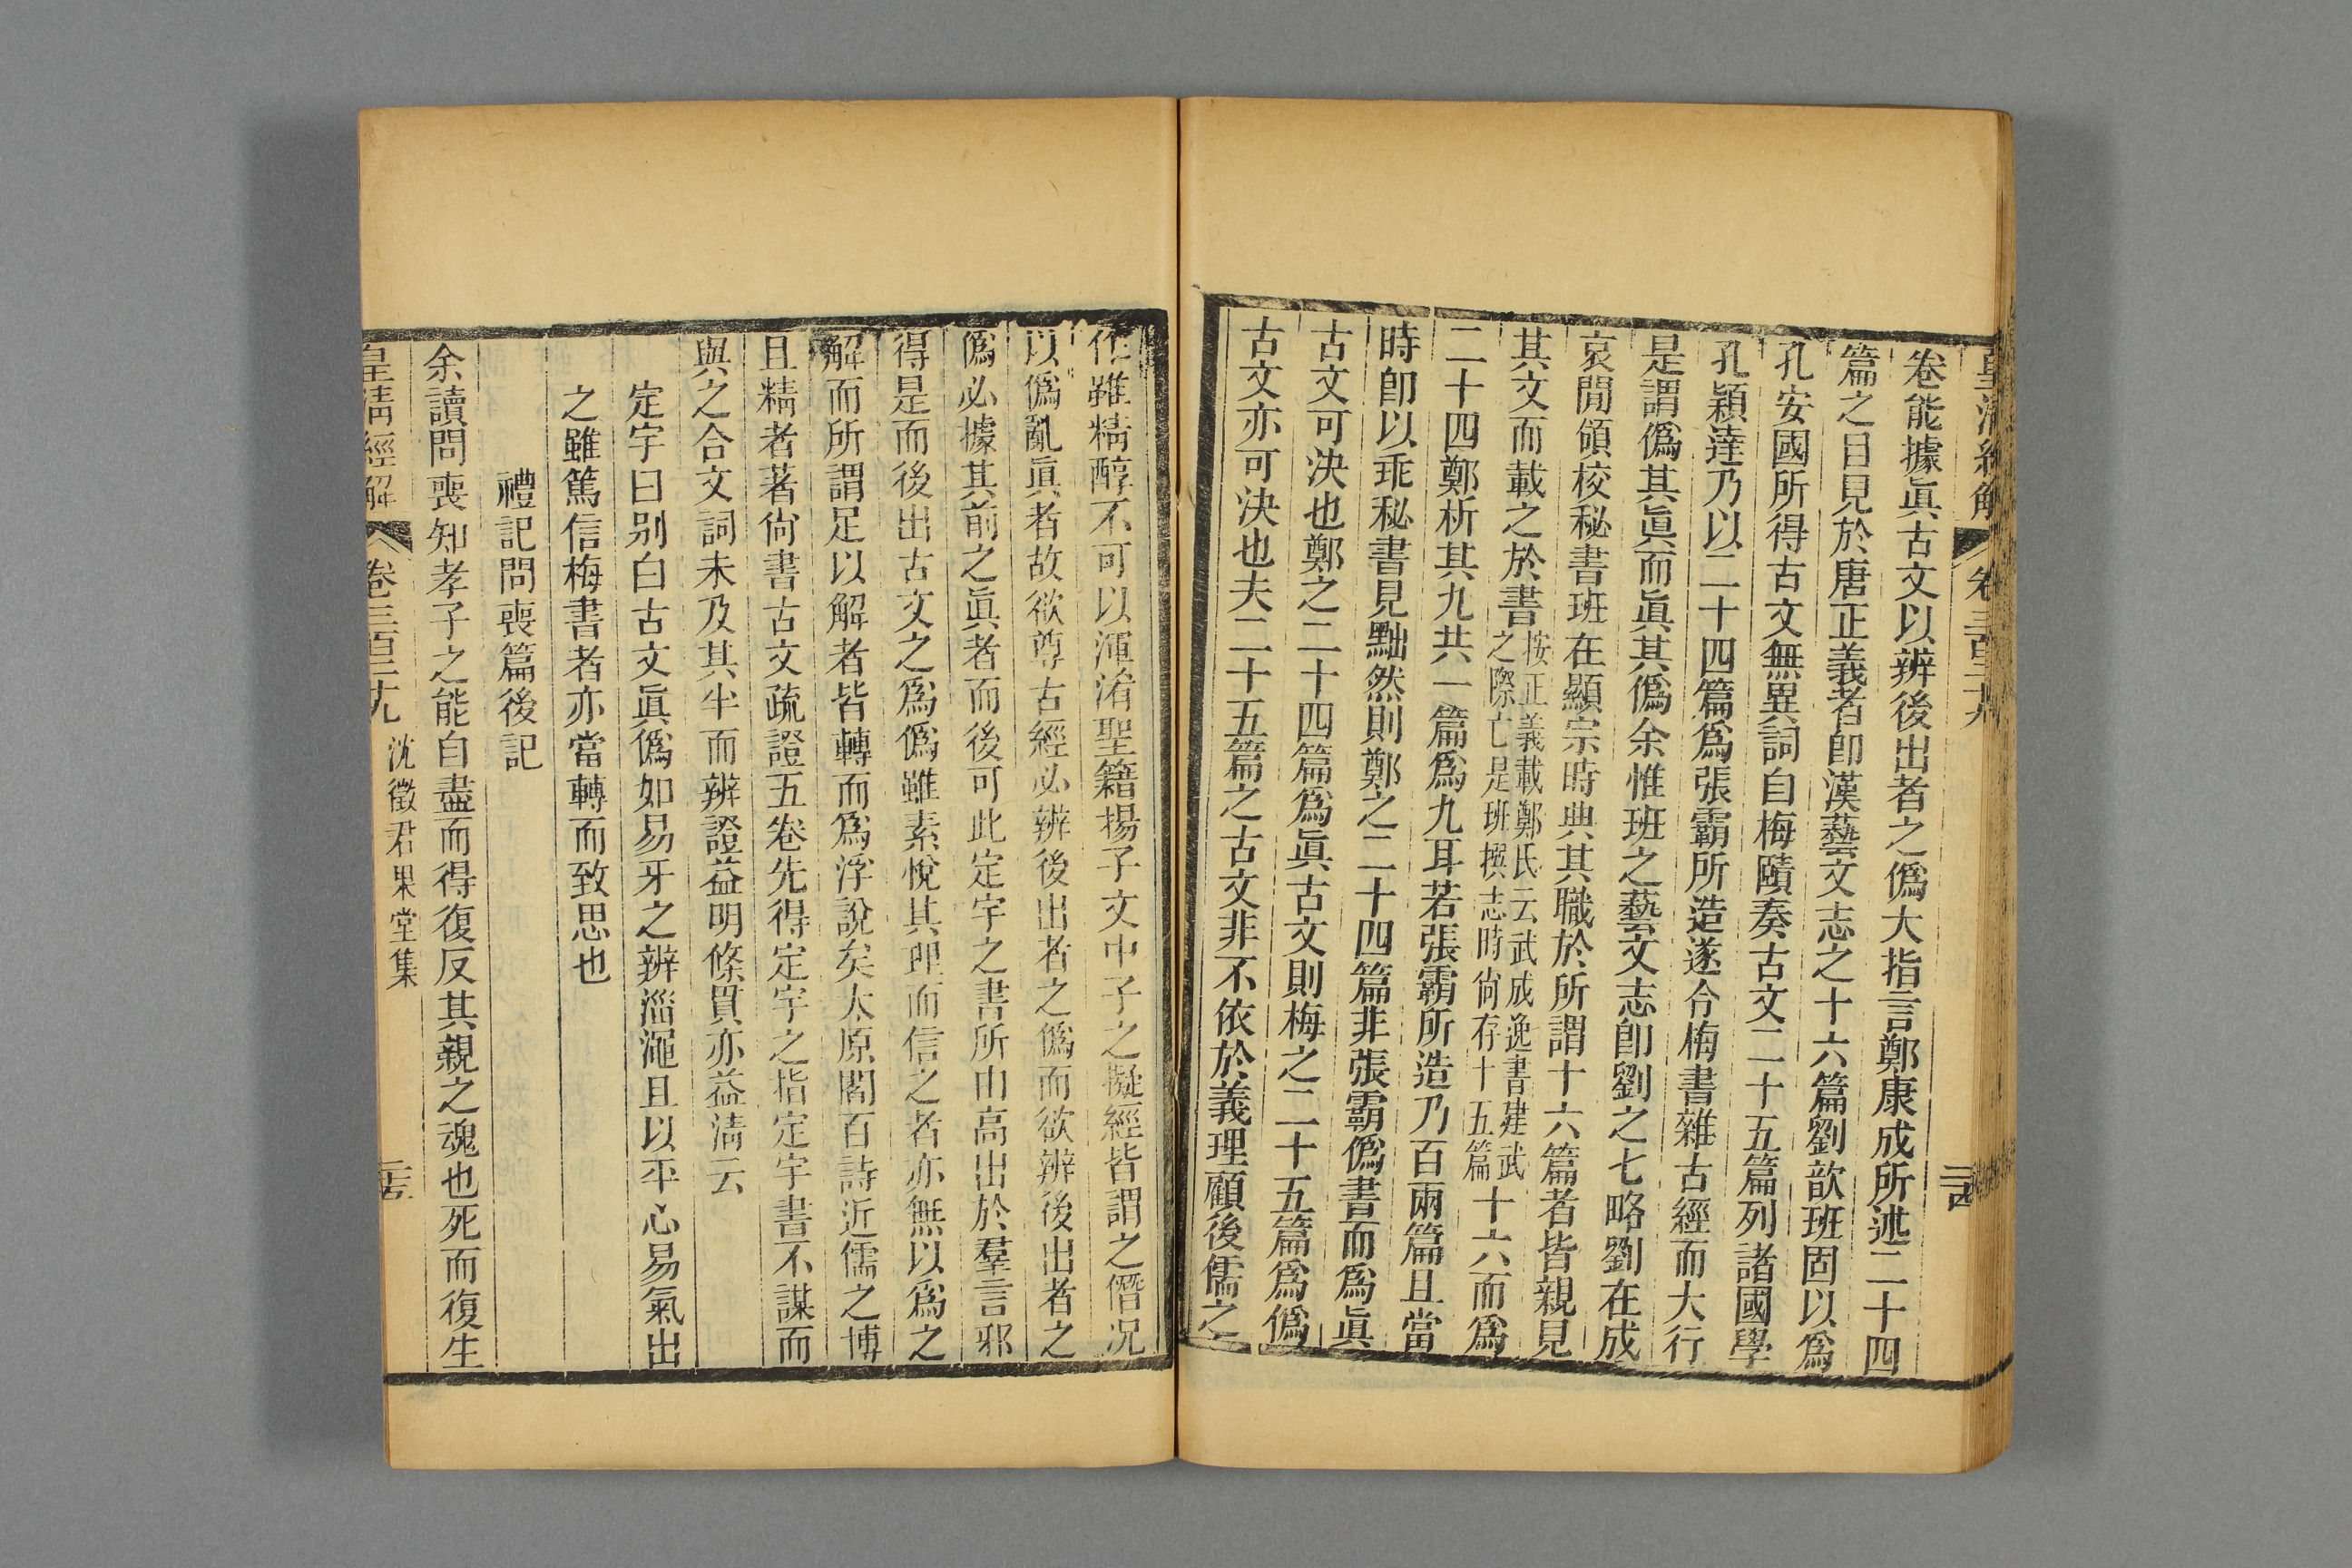 皇清經解 卷三百二十九
卷能據眞古文以辨後出者之僞大指言鄭康成所述二十四
篇之目見於唐正義者卽漢藝文志之十六篇劉歆班固以爲
孔安國所得古文無異詞自梅賾奏古文二十五篇列諸國學
孔穎達乃以二十四篇爲張霸所造遂令梅書雜古經而大行
是謂僞其眞而眞其僞余惟班之藝文志卽劉之七略劉在成
哀間領校秘書班在顯宗時典其職於所謂十六篇者皆親見
其文而載之於書按正義載鄭氏云武成逸書建武之際亡是班撰志時尚存十五篇十六而爲
二十四鄭析其九共一篇爲九耳若張霸所造乃百兩篇且當
時卽以乖秘書見黜然則鄭之二十四篇非張霸僞書而爲眞
古文可決也鄭之二十四篇爲眞古文則梅之二十五篇爲僞
古文亦可決也夫二十五篇之古文非不依於義理顧後儒之
作雖精醇不可以渾淆聖籍揚子文中子之擬經皆謂之僭况
以僞亂眞者故欲尊古經必辨後出者之僞而欲辨後出者之
僞必據其前之眞者而後可此定宇之書所由高出於羣言邪
得是而後出古文之爲僞雖素悅其理而信之者亦無以爲之
解而所謂足以解者皆轉而爲浮說矣太原閻百詩近儒之博
且精者著尚書古文疏證五卷先得定宇之指定宇書不謀而
與之合文詞未及其半而辨證益明條貫亦益淸云
定宇曰别白古文眞僞如易牙之辨淄澠且以平心易氣出
之雖篤信梅書者亦當轉而致思也
禮記問喪篇後記
余讀問喪知孝子之能自盡而得復反其親之魂也死而復生
皇清經解 卷三百二十九 沈徵君果堂集